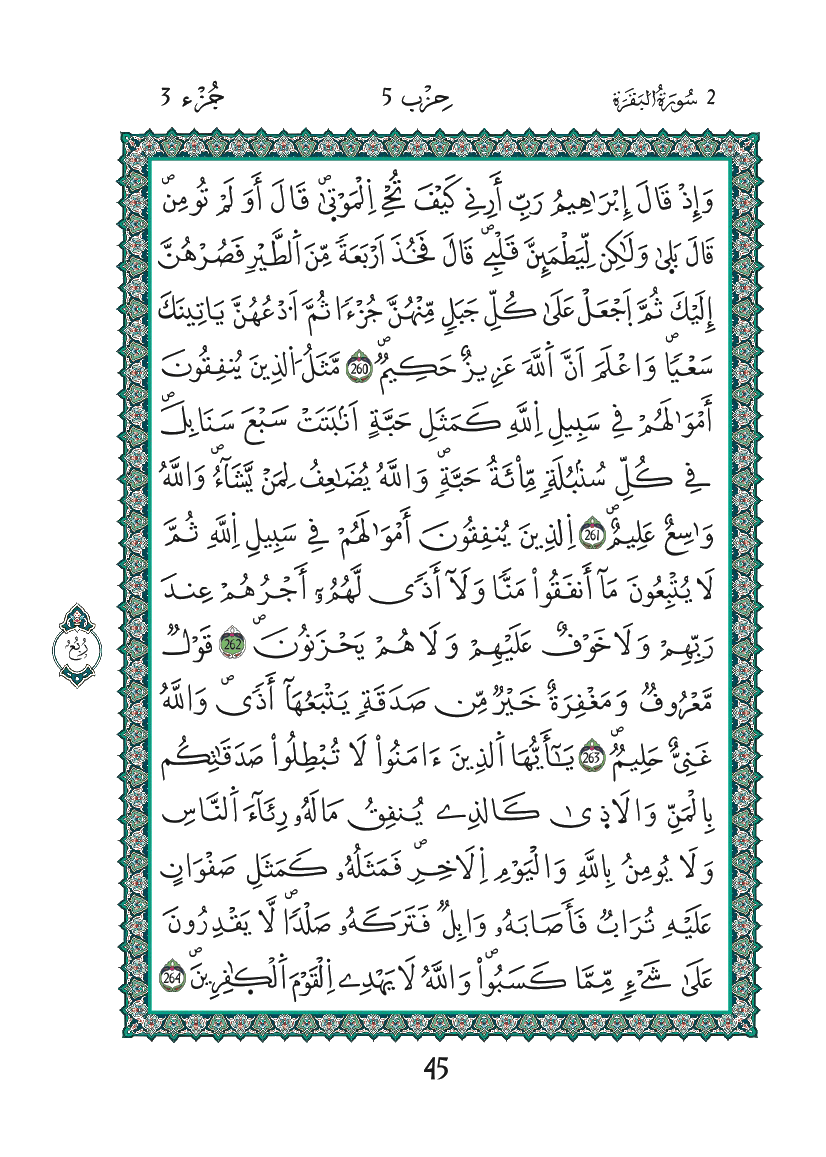 2 سُورَةُ الْبَقَرَة حِزْب 5 جُزْء 3
وَإِذْ قَالَ إِبْرَٰهِيمُ رَبِّ أَرِنِے كَيْفَ تُحْيِ اِلْمَوْت۪ىٰۖ قَالَ أَوَلَمْ تُومِنۖ
قَالَ بَل۪ىٰ وَلَٰكِن لِّيَطْمَئِنَّ قَلْبِےۖ قَالَ فَخُذَ اَرْبَعَةٗ مِّنَ اَ۬لطَّيْرِ فَصُرْهُنَّ
إِلَيْكَ ثُمَّ اَ۪جْعَلْ عَلَىٰ كُلِّ جَبَلٖ مِّنْهُنَّ جُزْءٗا ثُمَّ اَ۟دْعُهُنَّ يَاتِينَكَ
سَعْيٗاۖ وَاعْلَمَ اَنَّ اَ۬للَّهَ عَزِيزٌ حَكِيمٞۖ 260 مَّثَلُ اُ۬لذِينَ يُنفِقُونَ
أَمْوَٰلَهُمْ فِے سَبِيلِ اِ۬للَّهِ كَمَثَلِ حَبَّةٍ اَنۢبَتَتْ سَبْعَ سَنَابِلَۖ
فِے كُلِّ سُنۢبُلَةٖ مِّاْئَةُ حَبَّةٖۖ وَاللَّهُ يُضَٰعِفُ لِمَنْ يَّشَآءُۖ وَاللَّهُ
وَٰسِعٌ عَلِيمٌۖ 261 اِ۬لذِينَ يُنفِقُونَ أَمْوَٰلَهُمْ فِے سَبِيلِ اِ۬للَّهِ ثُمَّ
لَا يُتْبِعُونَ مَآ أَنفَقُواْ مَنّٗا وَلَآ أَذٗى لَّهُمُۥٓ أَجْرُهُمْ عِندَ
رَبِّهِمْ وَلَا خَوْفٌ عَلَيْهِمْ وَلَا هُمْ يَحْزَنُونَۖ 262 قَوْلٞ
مَّعْرُوفٞ وَمَغْفِرَةٌ خَيْرٞ مِّن صَدَقَةٖ يَتْبَعُهَآ أَذٗىۖ وَاللَّهُ
غَنِيٌّ حَلِيمٞۖ 263 يَٰٓأَيُّهَا اَ۬لذِينَ ءَامَنُواْ لَا تُبْطِلُواْ صَدَقَٰتِكُم
بِالْمَنِّ وَالَاذ۪ىٰ كَالذِے يُنفِقُ مَالَهُۥ رِئَآءَ اَ۬لنَّاسِ
وَلَا يُومِنُ بِاللَّهِ وَالْيَوْمِ اِ۬لَاخِرِۖ فَمَثَلُهُۥ كَمَثَلِ صَفْوَانٍ
عَلَيْهِ تُرَابٞ فَأَصَابَهُۥ وَابِلٞ فَتَرَكَهُۥ صَلْدٗاۖ لَّا يَقْدِرُونَ
عَلَىٰ شَےْءٖ مِّمَّا كَسَبُواْۖ وَاللَّهُ لَا يَهْدِے اِ۬لْقَوْمَ اَ۬لْكٰ۪فِرِينَۖ 264
رُبُعُ
45